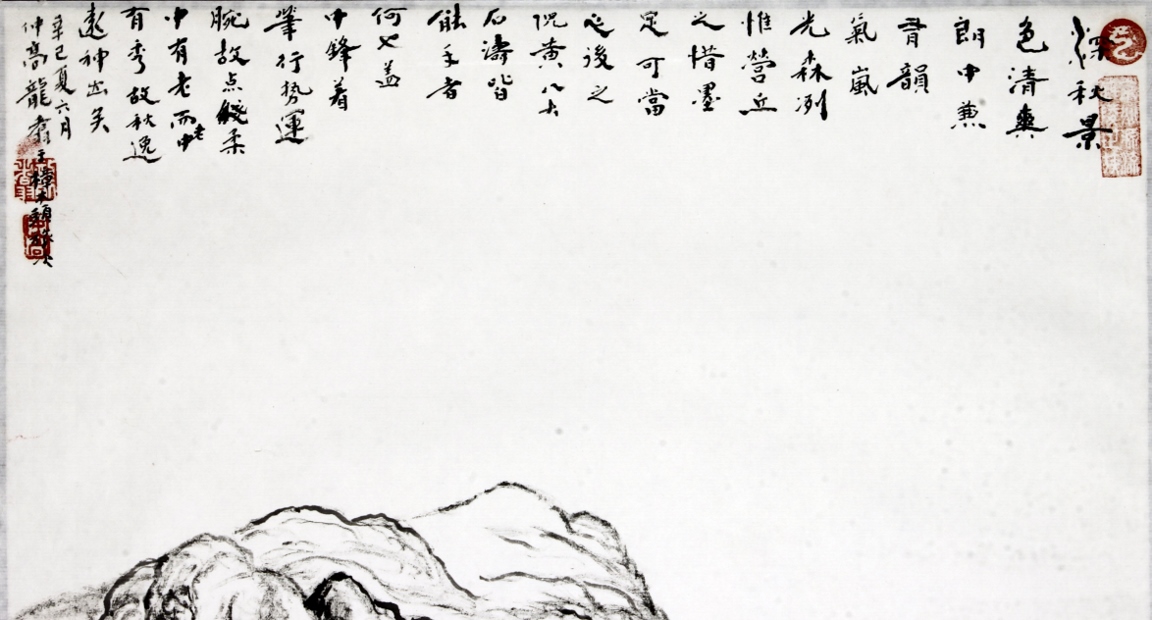 深秋景
色清爽
朗中兼
有韻
氣嵐
光森冽
惟營丘
之惜墨
定可當
之後之
倪黃八大
石濤皆
能手者
何也蓋
中鋒着
筆行勢運
腕故点綫柔
中有老而老中
有秀故秋逸
遠神出矣
辛巳夏六月
仲高龍